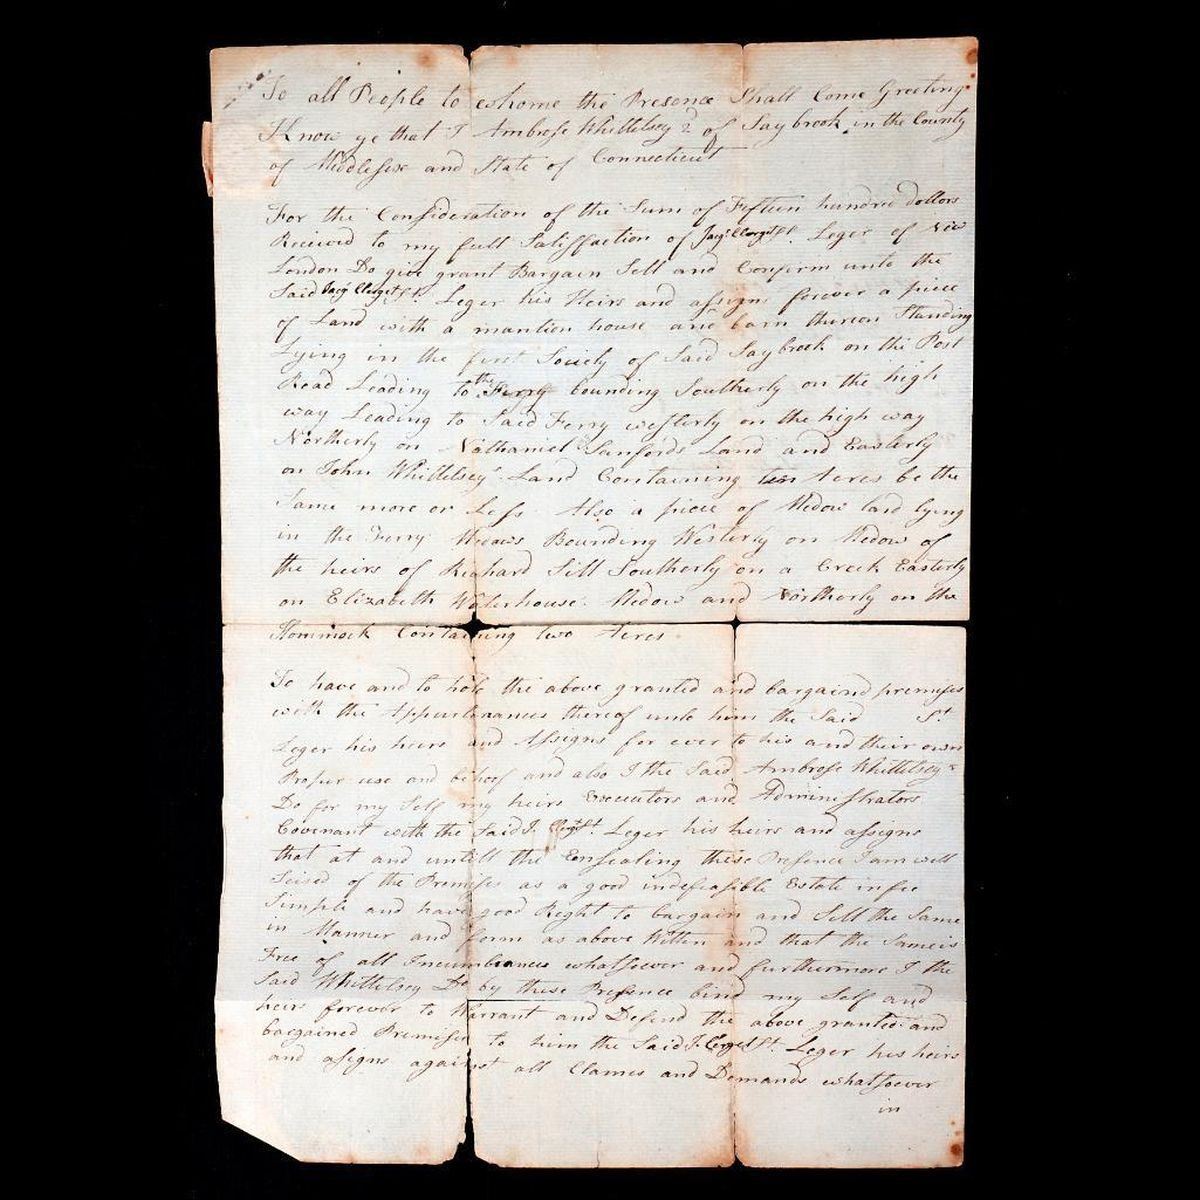 To all People to whome the Presence Shall Come Greeting
Know ye that I Ambrose Whittelsey 2d of Saybrook in the County
of Middlesex and State of Connecticut
For the Consideration of the Sum of Fifteen hundred dollors
Recieved to my full Satisffaction of Jacq Clerget St. Leger of New
London Do give grant Bargain Sell and Confirm unto the
Said Jacq Clerget St. Leger his Heirs and assigns forever a piece
of Land with a mantion house and barn thereon Standing
Lying in the first Society of Said Saybrook on the Post
Road Leading to the Ferry bounding Southerly on the high
way Leading to Said Ferry westerly on the high way
Northerly on Nathaniel Sanfords Land and Easterly
on John Whittelseys Land Containing ten Acres be the
Same more or Less Also a piece of Medow land lying
in the Ferry Medows Bounding Westerly on Medow of
the heirs of Richard Sill Southerly on a Creek Easterly
on Elizabeth Waterhouse Medow and Northerly on the
Hommock Containing two Acres
To have and to hold the above granted and bargaind premises
with the Appurtenances thereof unto him the Said St
Leger his heirs and Assigns for ever to his and their own
Proper use and behoof and also I the Said Ambrose Whittelsey
Do for my Self my heirs Executors and Administrators
Covenant with the Said J. Clerget St. Leger his heirs and assigns
that at and untill the Ensealing these Presence I am well
Seised of the Premises as a good indefeasible Estate in fee
Simple and have good Right to bargain and Sell the Same
in Manner and form as above Witten and that the Same is
Free of all Incumbrances whatsoever and furthermore I the
Said Whittelsey Do by these Presence bind my Self and
heirs forever to Warrant and Defend the above granted and
bargained Premises to him the Said J. Clerget St. Leger his heirs
and assigns against all Clames and Demands whatsoever
in